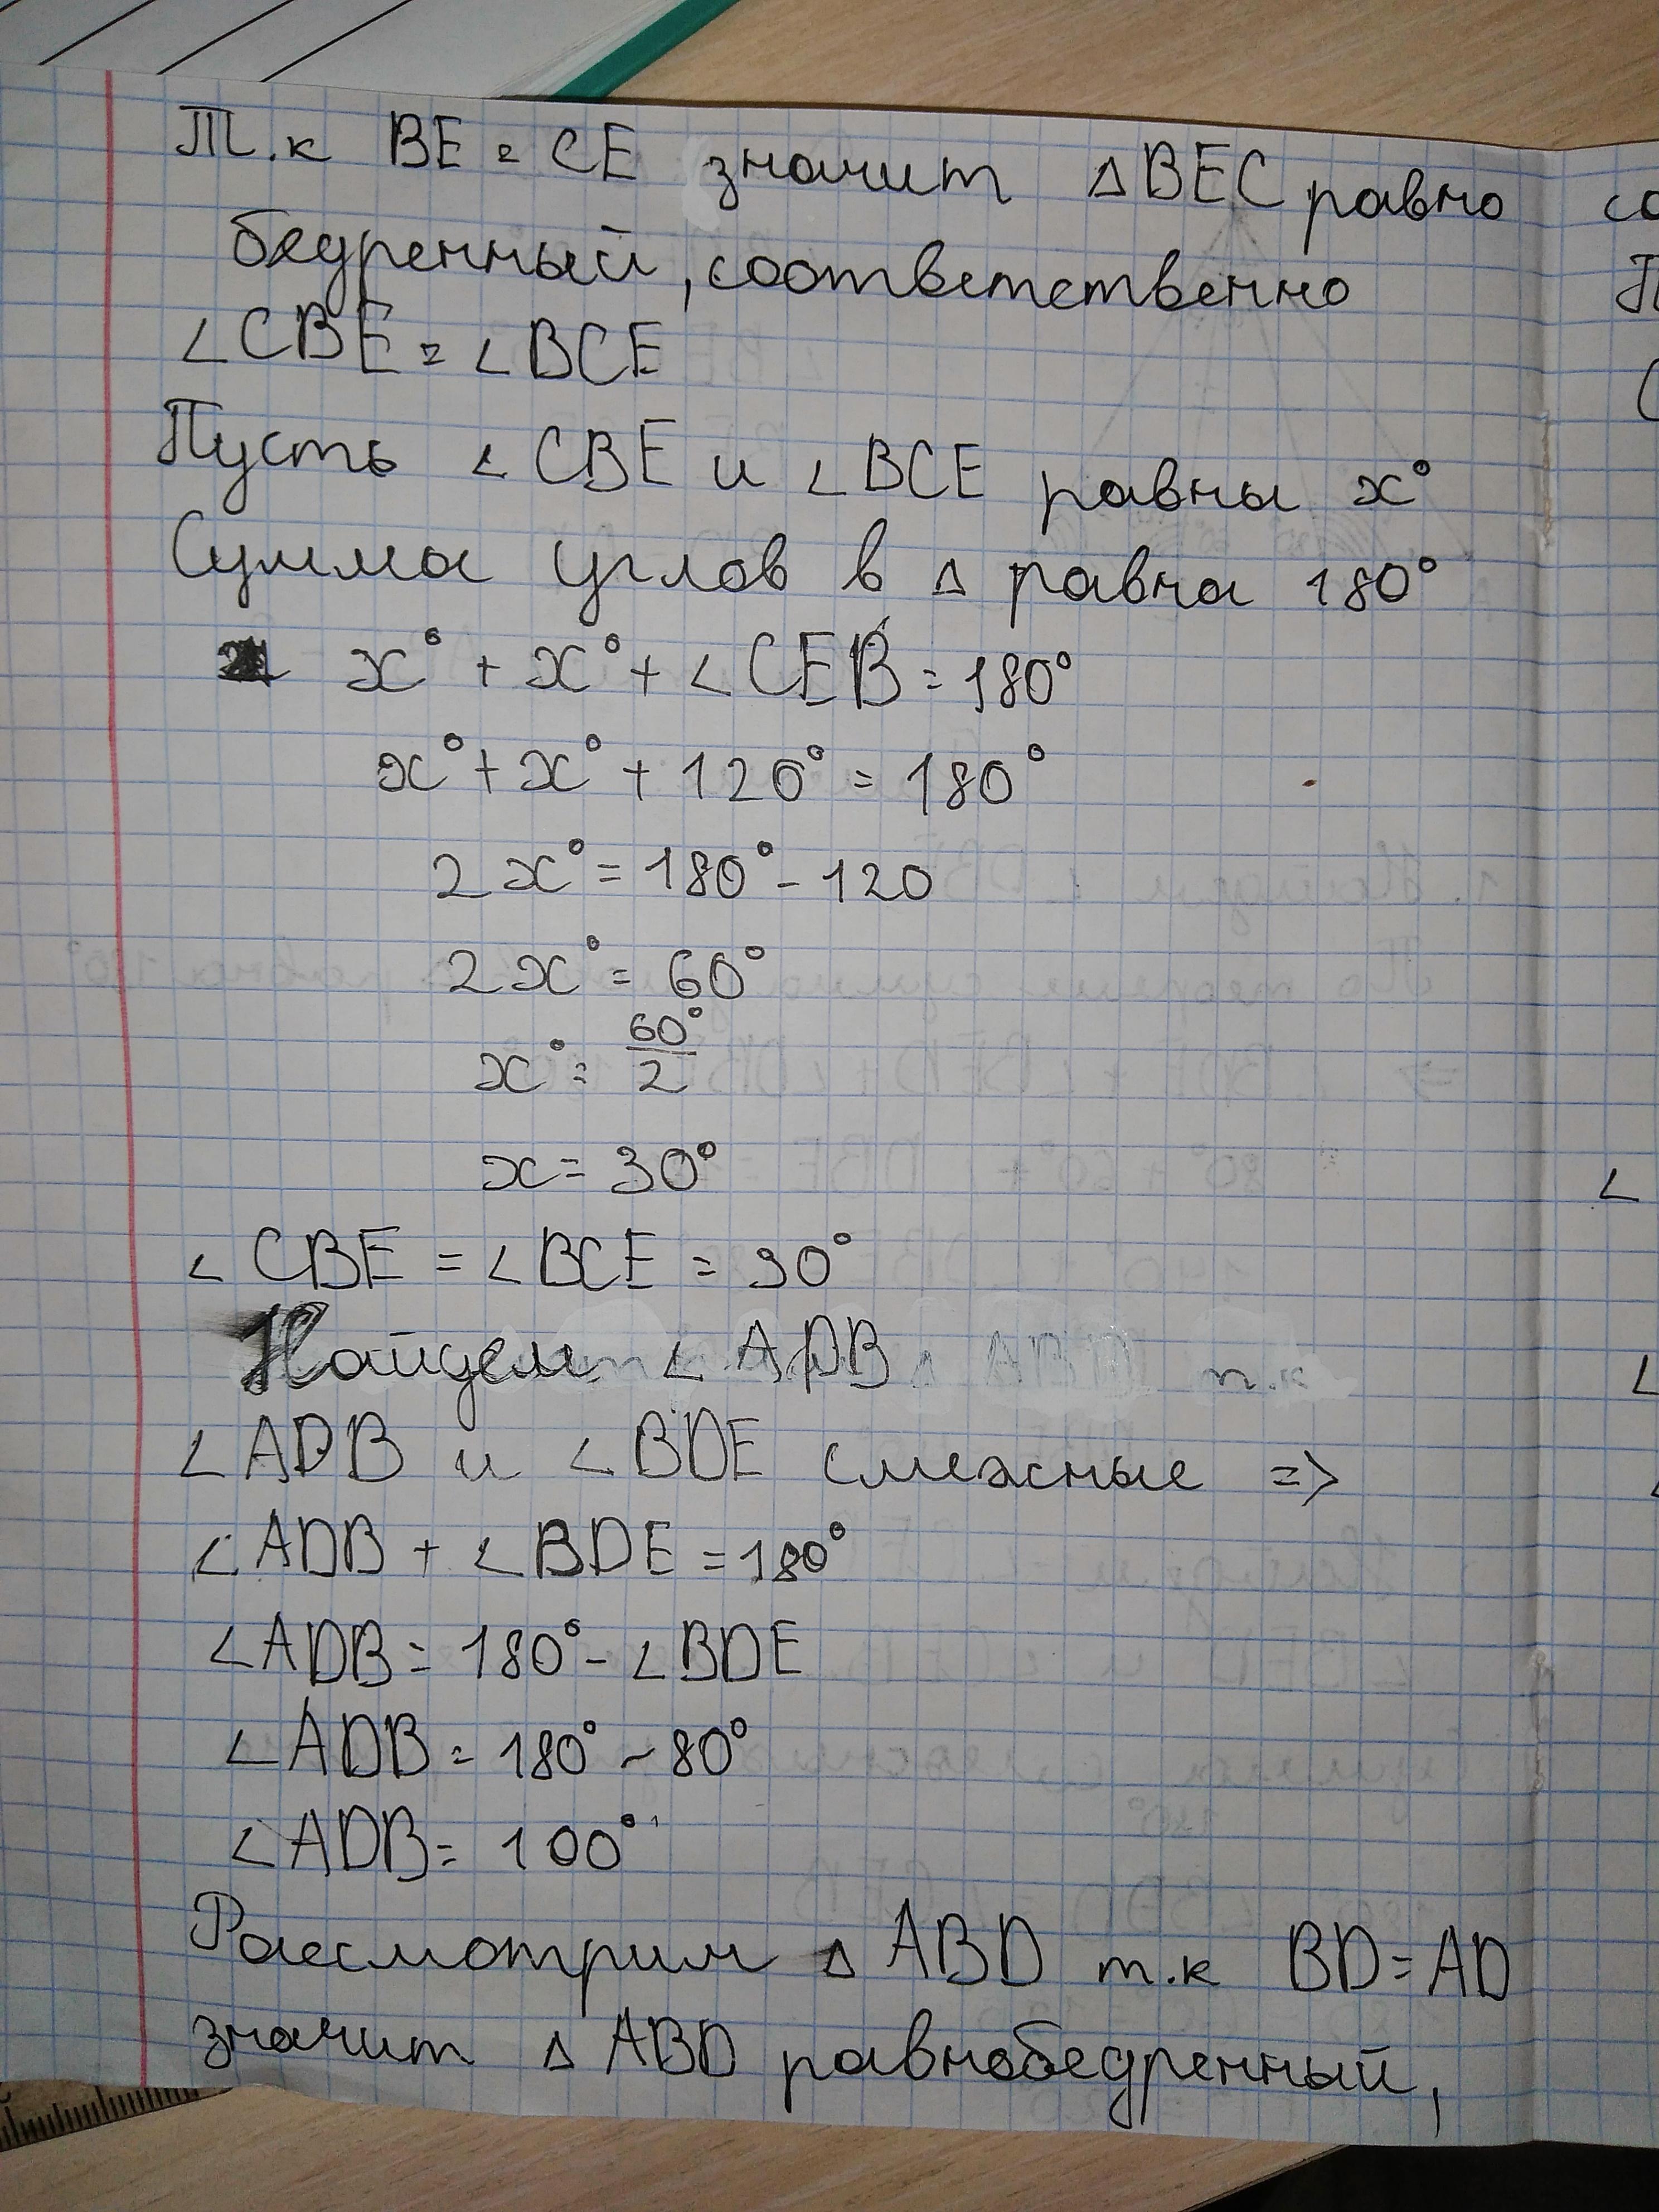 Т.к BE = CE значит △BEC равно
бедренный, соответственно
∠CBE = ∠BCE
Пусть ∠CBE и ∠BCE равны x°
Сумма углов в △ равна 180°
x° + x° + ∠CEB = 180°
x° + x° + 120° = 180°
2x° = 180° - 120
2x° = 60°
x° = 60°/2
x = 30°
∠CBE = ∠BCE = 30°
Найдем ∠ADB
∠ADB и ∠BDE смежные =>
∠ADB + ∠BDE = 180°
∠ADB = 180° - ∠BDE
∠ADB = 180° - 80°
∠ADB = 100°
Рассмотрим △ABD т.к BD = AD
значит △ABD равнобедренный,